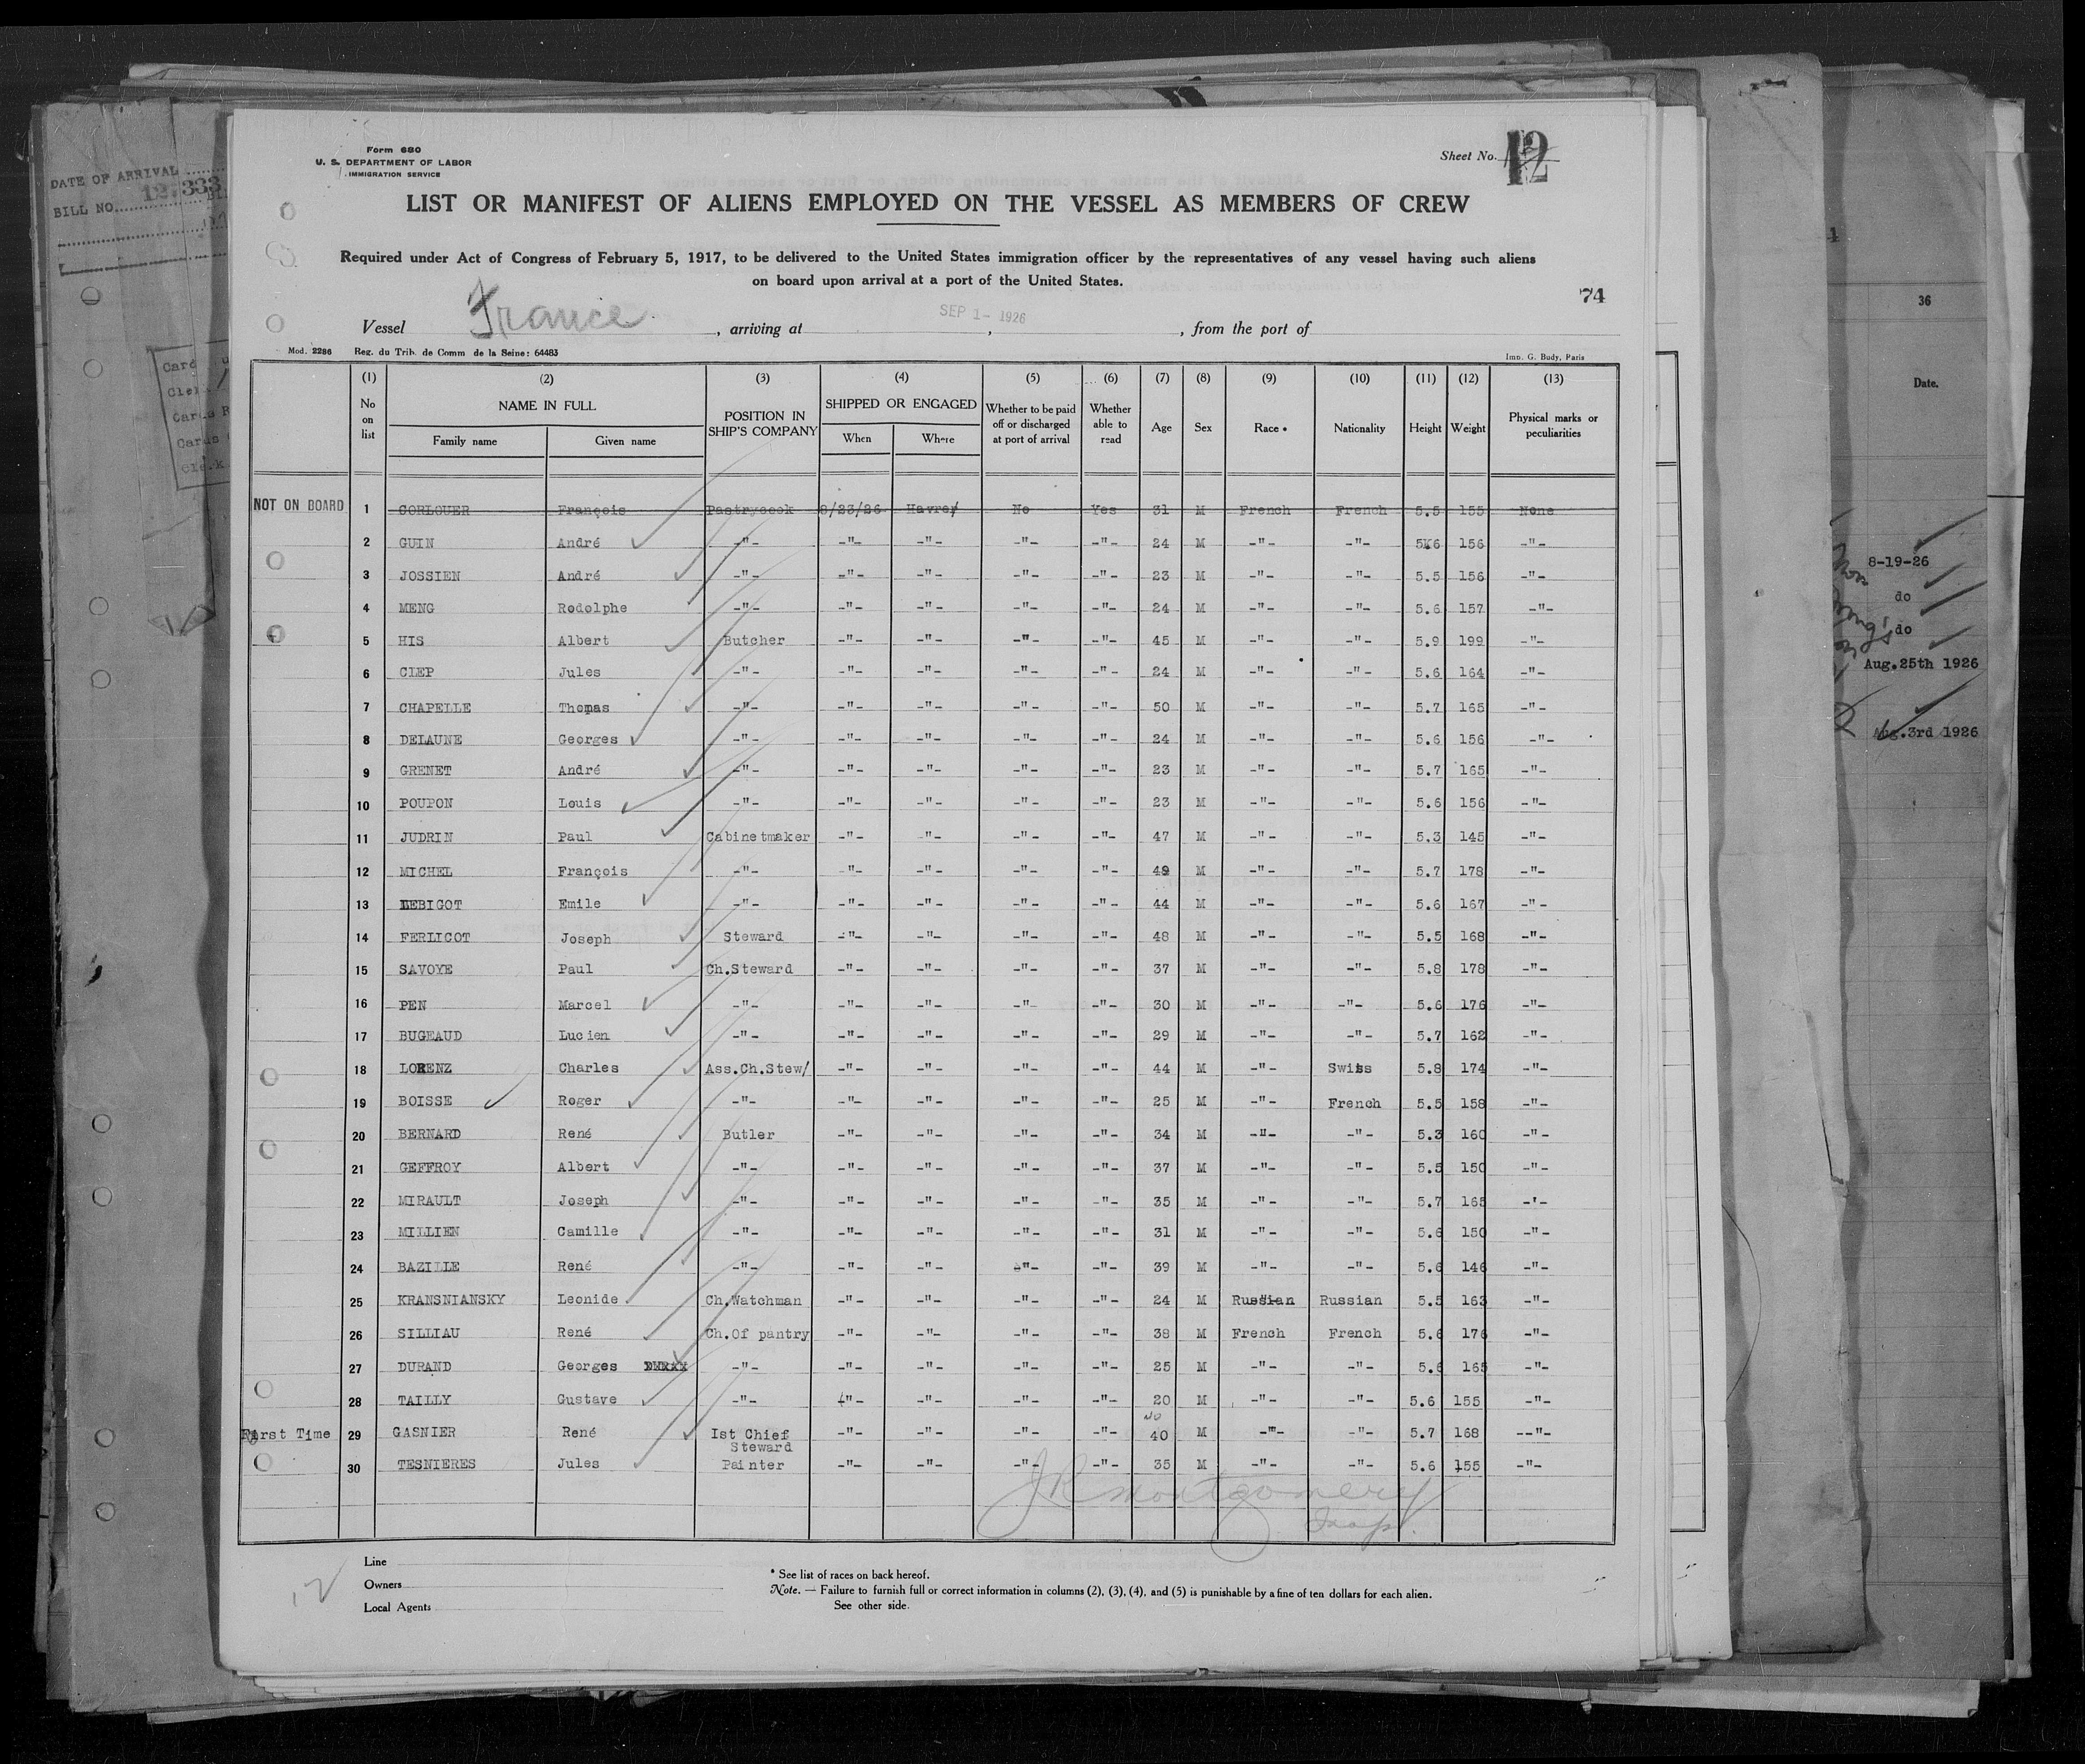 Form 680
U. S. DEPARTMENT OF LABOR
IMMIGRATION SERVICE
Sheet No. 12
LIST OR MANIFEST OF ALIENS EMPLOYED ON THE VESSEL AS MEMBERS OF CREW
Required under Act of Congress of February 5, 1917, to be delivered to the United States immigration officer by the representatives of any vessel having such aliens
on board upon arrival at a port of the United States.
74
Vessel France, arriving at SEP 1- 1926, from the port of
Mod. 2286 Reg. du Trib. de Comm de la Seine: 64483 Imp. G. Budy, Paris
(1) (2) (3) (4) (5) (6) (7) (8) (9) (10) (11) (12) (13)
No on list NAME IN FULL Family name Given name POSITION IN SHIP'S COMPANY SHIPPED OR ENGAGED When Where Whether to be paid off or discharged at port of arrival Whether able to read Age Sex Race * Nationality Height Weight Physical marks or peculiarities
NOT ON BOARD 1 CORLOUER François Pastrycook 8/23/26 Havre/ No Yes 31 M French French 5.5 155 None
2 GUIN André -"- -"- -"- -"- -"- 24 M -"- -"- 5K6 156 -"-
3 JOSSIEN André -"- -"- -"- -"- -"- 23 M -"- -"- 5.5 156 -"-
4 MENG Rodolphe -"- -"- -"- -"- -"- 24 M -"- -"- 5.6 157 -"-
5 HIS Albert Butcher -"- -"- -"- -"- 45 M -"- -"- 5.9 199 -"-
6 CLEP Jules -"- -"- -"- -"- -"- 24 M -"- -"- 5.6 164 -"-
7 CHAPELLE Thomas -"- -"- -"- -"- -"- 50 M -"- -"- 5.7 165 -"-
8 DELAUNE Georges -"- -"- -"- -"- -"- 24 M -"- -"- 5.6 156 -"-
9 GRENET André -"- -"- -"- -"- -"- 23 M -"- -"- 5.7 165 -"-
10 POUPON Louis -"- -"- -"- -"- -"- 23 M -"- -"- 5.6 156 -"-
11 JUDRIN Paul Cabinetmaker -"- -"- -"- -"- 47 M -"- -"- 5.3 145 -"-
12 MICHEL François -"- -"- -"- -"- -"- 49 M -"- -"- 5.7 178 -"-
13 LEBIGOT Emile -"- -"- -"- -"- -"- 44 M -"- -"- 5.6 167 -"-
14 FERLICOT Joseph Steward -"- -"- -"- -"- 48 M -"- -"- 5.5 168 -"-
15 SAVOYE Paul Ch.Steward -"- -"- -"- -"- 37 M -"- -"- 5.8 178 -"-
16 PEN Marcel -"- -"- -"- -"- -"- 30 M -"- -"- 5.6 176 -"-
17 BUGEAUD Lucien -"- -"- -"- -"- -"- 29 M -"- -"- 5.7 162 -"-
18 LORENZ Charles Ass.Ch.Stew/ -"- -"- -"- -"- 44 M -"- Swiss 5.8 174 -"-
19 BOISSE Roger -"- -"- -"- -"- -"- 25 M -"- French 5.5 158 -"-
20 BERNARD René Butler -"- -"- -"- -"- 34 M -"- -"- 5.3 160 -"-
21 GEFFROY Albert -"- -"- -"- -"- -"- 37 M -"- -"- 5.5 150 -"-
22 MIRAULT Joseph -"- -"- -"- -"- -"- 35 M -"- -"- 5.7 165 -'-
23 MILLIEN Camille -"- -"- -"- -"- -"- 31 M -"- -"- 5.6 150 -"-
24 BAZILLE René -"- -"- -"- -"- -"- 39 M -"- -"- 5.6 146 -"-
25 KRANSNIANSKY Leonide Ch.Watchman -"- -"- -"- -"- 24 M Russian Russian 5.5 163 -"-
26 SILLIAU René Ch.Of pantry -"- -"- -"- -"- 38 M French French 5.6 176 -"-
27 DURAND Georges -"- -"- -"- -"- -"- 25 M -"- -"- 5.6 165 -"-
28 TAILLY Gustave -"- -"- -"- -"- -"- 20 M -"- -"- 5.6 155 -"-
First Time 29 GASNIER René Ist Chief Steward -"- -"- -"- -"- 40 40 M -"- -"- 5.7 168 --"-
30 TESNIERES Jules Painter -"- -"- -"- -"- 35 M -"- -"- 5.6 155 -"-
J R Montgomery
Insp.
Line
Owners
Local Agents
12
* See list of races on back hereof.
Note. — Failure to furnish full or correct information in columns (2), (3), (4), and (5) is punishable by a fine of ten dollars for each alien.
See other side.
DATE OF ARRIVAL
BILL NO.
36
Date.
8-19-26
do
do
Aug.25th 1926
Aug.3rd 1926